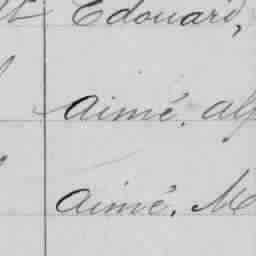 Edouard,
Aimé, alp
Aimé, M